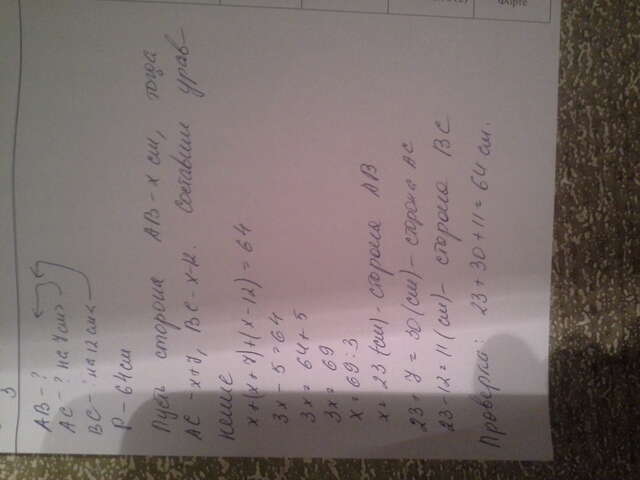 3
AB - ?
AC - ? на 7 см >
BC - ? на 12 см <
P - 64 см
Пусть сторона AB - x см, тогда
AC - x+7, BC - x-12. Составим урав-
нение
x+(x+7)+(x-12)=64
3x-5=64
3x=64+5
3x=69
x=69:3
x=23 (см) - сторона AB
23+7=30 (см) - сторона AC
23-12=11 (см) - сторона BC
Проверка: 23+30+11=64 см.